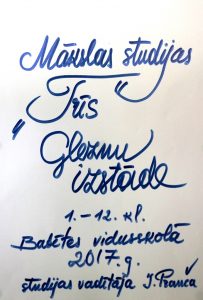 Mākslas studijas
"Trīs"
Gleznu
izstāde
1.-12. kl.
Babītes vidusskolā
2017.g.
studijas vadītāja I.